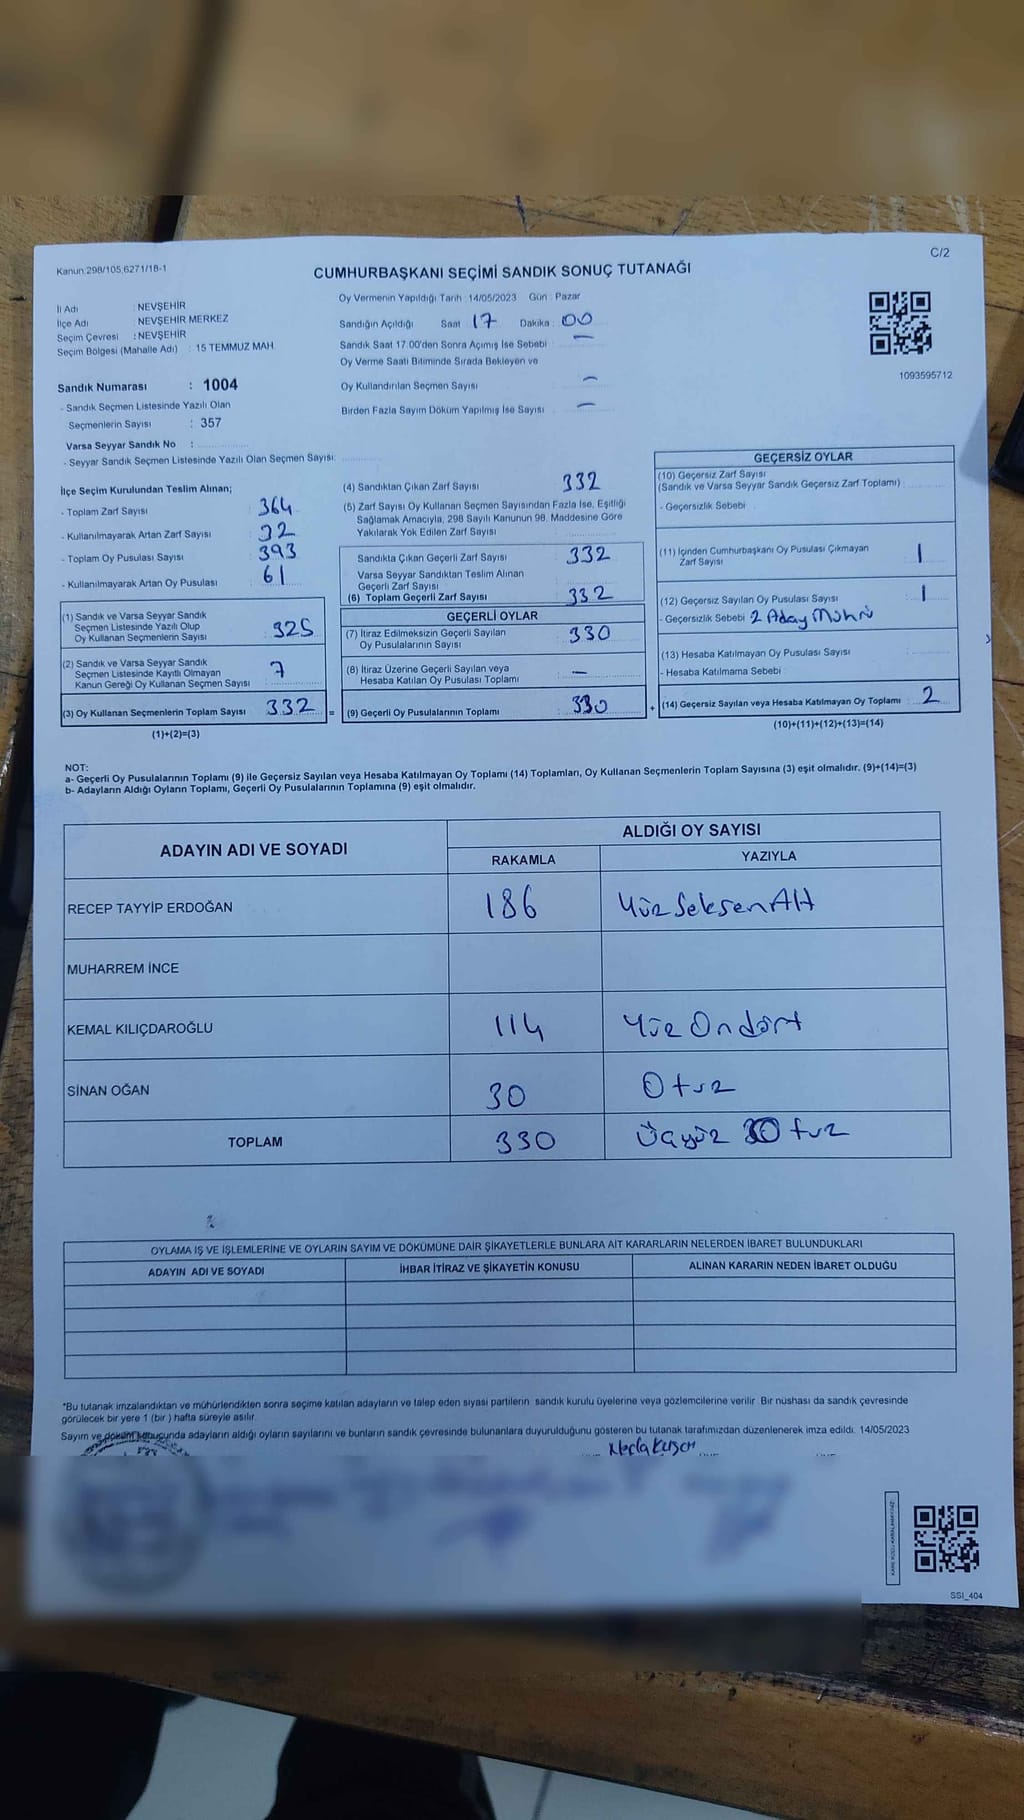 Kanun:298/105,6271/18-1
C/2
CUMHURBAŞKANI SEÇİMİ SANDIK SONUÇ TUTANAĞI
İl Adı : NEVŞEHİR
İlçe Adı : NEVŞEHİR MERKEZ
Seçim Çevresi : NEVŞEHİR
Seçim Bölgesi (Mahalle Adı) : 15 TEMMUZ MAH.
Sandık Numarası : 1004
- Sandık Seçmen Listesinde Yazılı Olan
Seçmenlerin Sayısı : 357
Varsa Seyyar Sandık No :
- Seyyar Sandık Seçmen Listesinde Yazılı Olan Seçmen Sayısı:
Oy Vermenin Yapıldığı Tarih : 14/05/2023 Gün : Pazar
Sandığın Açıldığı Saat 17 Dakika : 00
Sandık Saat 17.00'den Sonra Açımış İse Sebebi : —
Oy Verme Saati Bitiminde Sırada Bekleyen ve
Oy Kullandırılan Seçmen Sayısı —
Birden Fazla Sayım Döküm Yapılmış İse Sayısı —
1093595712
İlçe Seçim Kurulundan Teslim Alınan;
- Toplam Zarf Sayısı : 364
- Kullanılmayarak Artan Zarf Sayısı : 32
- Toplam Oy Pusulası Sayısı : 393
- Kullanılmayarak Artan Oy Pusulası : 61
(1) Sandık ve Varsa Seyyar Sandık
Seçmen Listesinde Yazılı Olup
Oy Kullanan Seçmenlerin Sayısı : 325
(2) Sandık ve Varsa Seyyar Sandık
Seçmen Listesinde Kayıtlı Olmayan
Kanun Gereği Oy Kullanan Seçmen Sayısı : 7
(3) Oy Kullanan Seçmenlerin Toplam Sayısı : 332 =
(1)+(2)=(3)
(4) Sandıktan Çıkan Zarf Sayısı : 332
(5) Zarf Sayısı Oy Kullanan Seçmen Sayısından Fazla İse, Eşitliği
Sağlamak Amacıyla, 298 Sayılı Kanunun 98. Maddesine Göre
Yakılarak Yok Edilen Zarf Sayısı :
Sandıkta Çıkan Geçerli Zarf Sayısı : 332
Varsa Seyyar Sandıktan Teslim Alınan
Geçerli Zarf Sayısı :
(6) Toplam Geçerli Zarf Sayısı : 332
GEÇERLİ OYLAR
(7) İtiraz Edilmeksizin Geçerli Sayılan
Oy Pusulalarının Sayısı : 330
(8) İtiraz Üzerine Geçerli Sayılan veya
Hesaba Katılan Oy Pusulası Toplamı : —
(9) Geçerli Oy Pusulalarının Toplamı : 330 +
GEÇERSİZ OYLAR
(10) Geçersiz Zarf Sayısı
(Sandık ve Varsa Seyyar Sandık Geçersiz Zarf Toplamı) :
- Geçersizlik Sebebi :
(11) İçinden Cumhurbaşkanı Oy Pusulası Çıkmayan
Zarf Sayısı : 1
(12) Geçersiz Sayılan Oy Pusulası Sayısı : 1
- Geçersizlik Sebebi : 2 Aday Mührü
(13) Hesaba Katılmayan Oy Pusulası Sayısı :
- Hesaba Katılmama Sebebi :
(14) Geçersiz Sayılan veya Hesaba Katılmayan Oy Toplamı : 2
(10)+(11)+(12)+(13)=(14)
NOT:
a- Geçerli Oy Pusulalarının Toplamı (9) ile Geçersiz Sayılan veya Hesaba Katılmayan Oy Toplamı (14) Toplamları, Oy Kullanan Seçmenlerin Toplam Sayısına (3) eşit olmalıdır. (9)+(14)=(3)
b- Adayların Aldığı Oyların Toplamı, Geçerli Oy Pusulalarının Toplamına (9) eşit olmalıdır.
ADAYIN ADI VE SOYADI
ALDIĞI OY SAYISI
RAKAMLA YAZIYLA
RECEP TAYYİP ERDOĞAN 186 Yüz Seksen Altı
MUHARREM İNCE
KEMAL KILIÇDAROĞLU 114 Yüz Ondört
SİNAN OĞAN 30 Otuz
TOPLAM 330 Üçyüz Otuz
OYLAMA İŞ VE İŞLEMLERİNE VE OYLARIN SAYIM VE DÖKÜMÜNE DAİR ŞİKAYETLERLE BUNLARA AİT KARARLARIN NELERDEN İBARET BULUNDUKLARI
ADAYIN ADI VE SOYADI İHBAR İTİRAZ VE ŞİKAYETİN KONUSU ALINAN KARARIN NEDEN İBARET OLDUĞU
*Bu tutanak imzalandıktan ve mühürlendikten sonra seçime katılan adayların ve talep eden siyasi partilerin sandık kurulu üyelerine veya gözlemcilerine verilir. Bir nüshası da sandık çevresinde
görülecek bir yere 1 (bir ) hafta süreyle asılır.
Sayım ve döküm sonucunda adayların aldığı oyların sayılarını ve bunların sandık çevresinde bulunanlara duyurulduğunu gösteren bu tutanak tarafımızdan düzenlenerek imza edildi. 14/05/2023
SSI_404